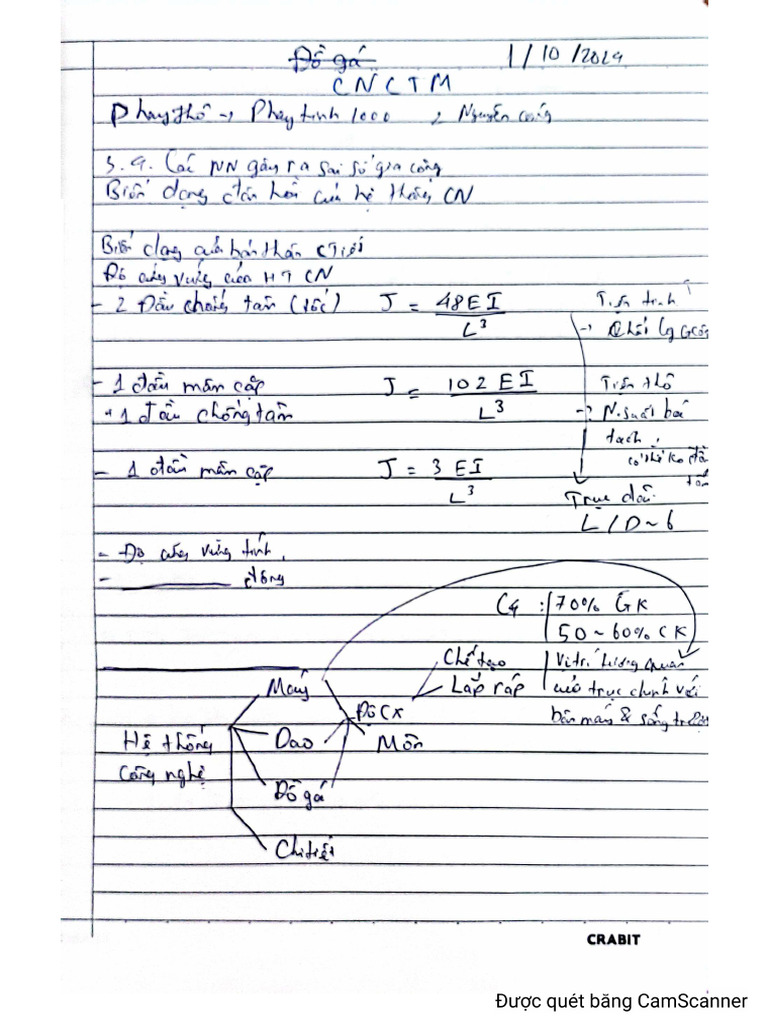 Đồ gá
1/10/2024
CNCTM
Phay thô → Phay tinh 1000 , Nguyên công
3.4. Các NN gây ra sai số gia công
Biến dạng đàn hồi của hệ thống CN
Biến dạng của bản thân CTiết
Độ cứng vững của HT CN
- 2 Đầu chống tâm (tốc) J = 48EI / L³
Tiện tinh
→ Chất lg Gcông
- 1 đầu mâm cặp J = 102 EI / L³
+ 1 đầu chống tâm
Tiện thô
→ N.suất bóc
tách
có thể ko
- 1 đầu mâm cặp J = 3 EI / L³
Trục
L/D ~ 6
- Độ cứng vững tĩnh
- ________ động
C4 : 70% GK
50 ~ 60% CK
Chế tạo
Lắp ráp
Vị trí tương quan
của trục chính với
bàn máy & sống
Máy
Độ CX
Dao
Mòn
Hệ thống
công nghệ
Đồ gá
Chi tiết
CRABIT
Được quét bằng CamScanner